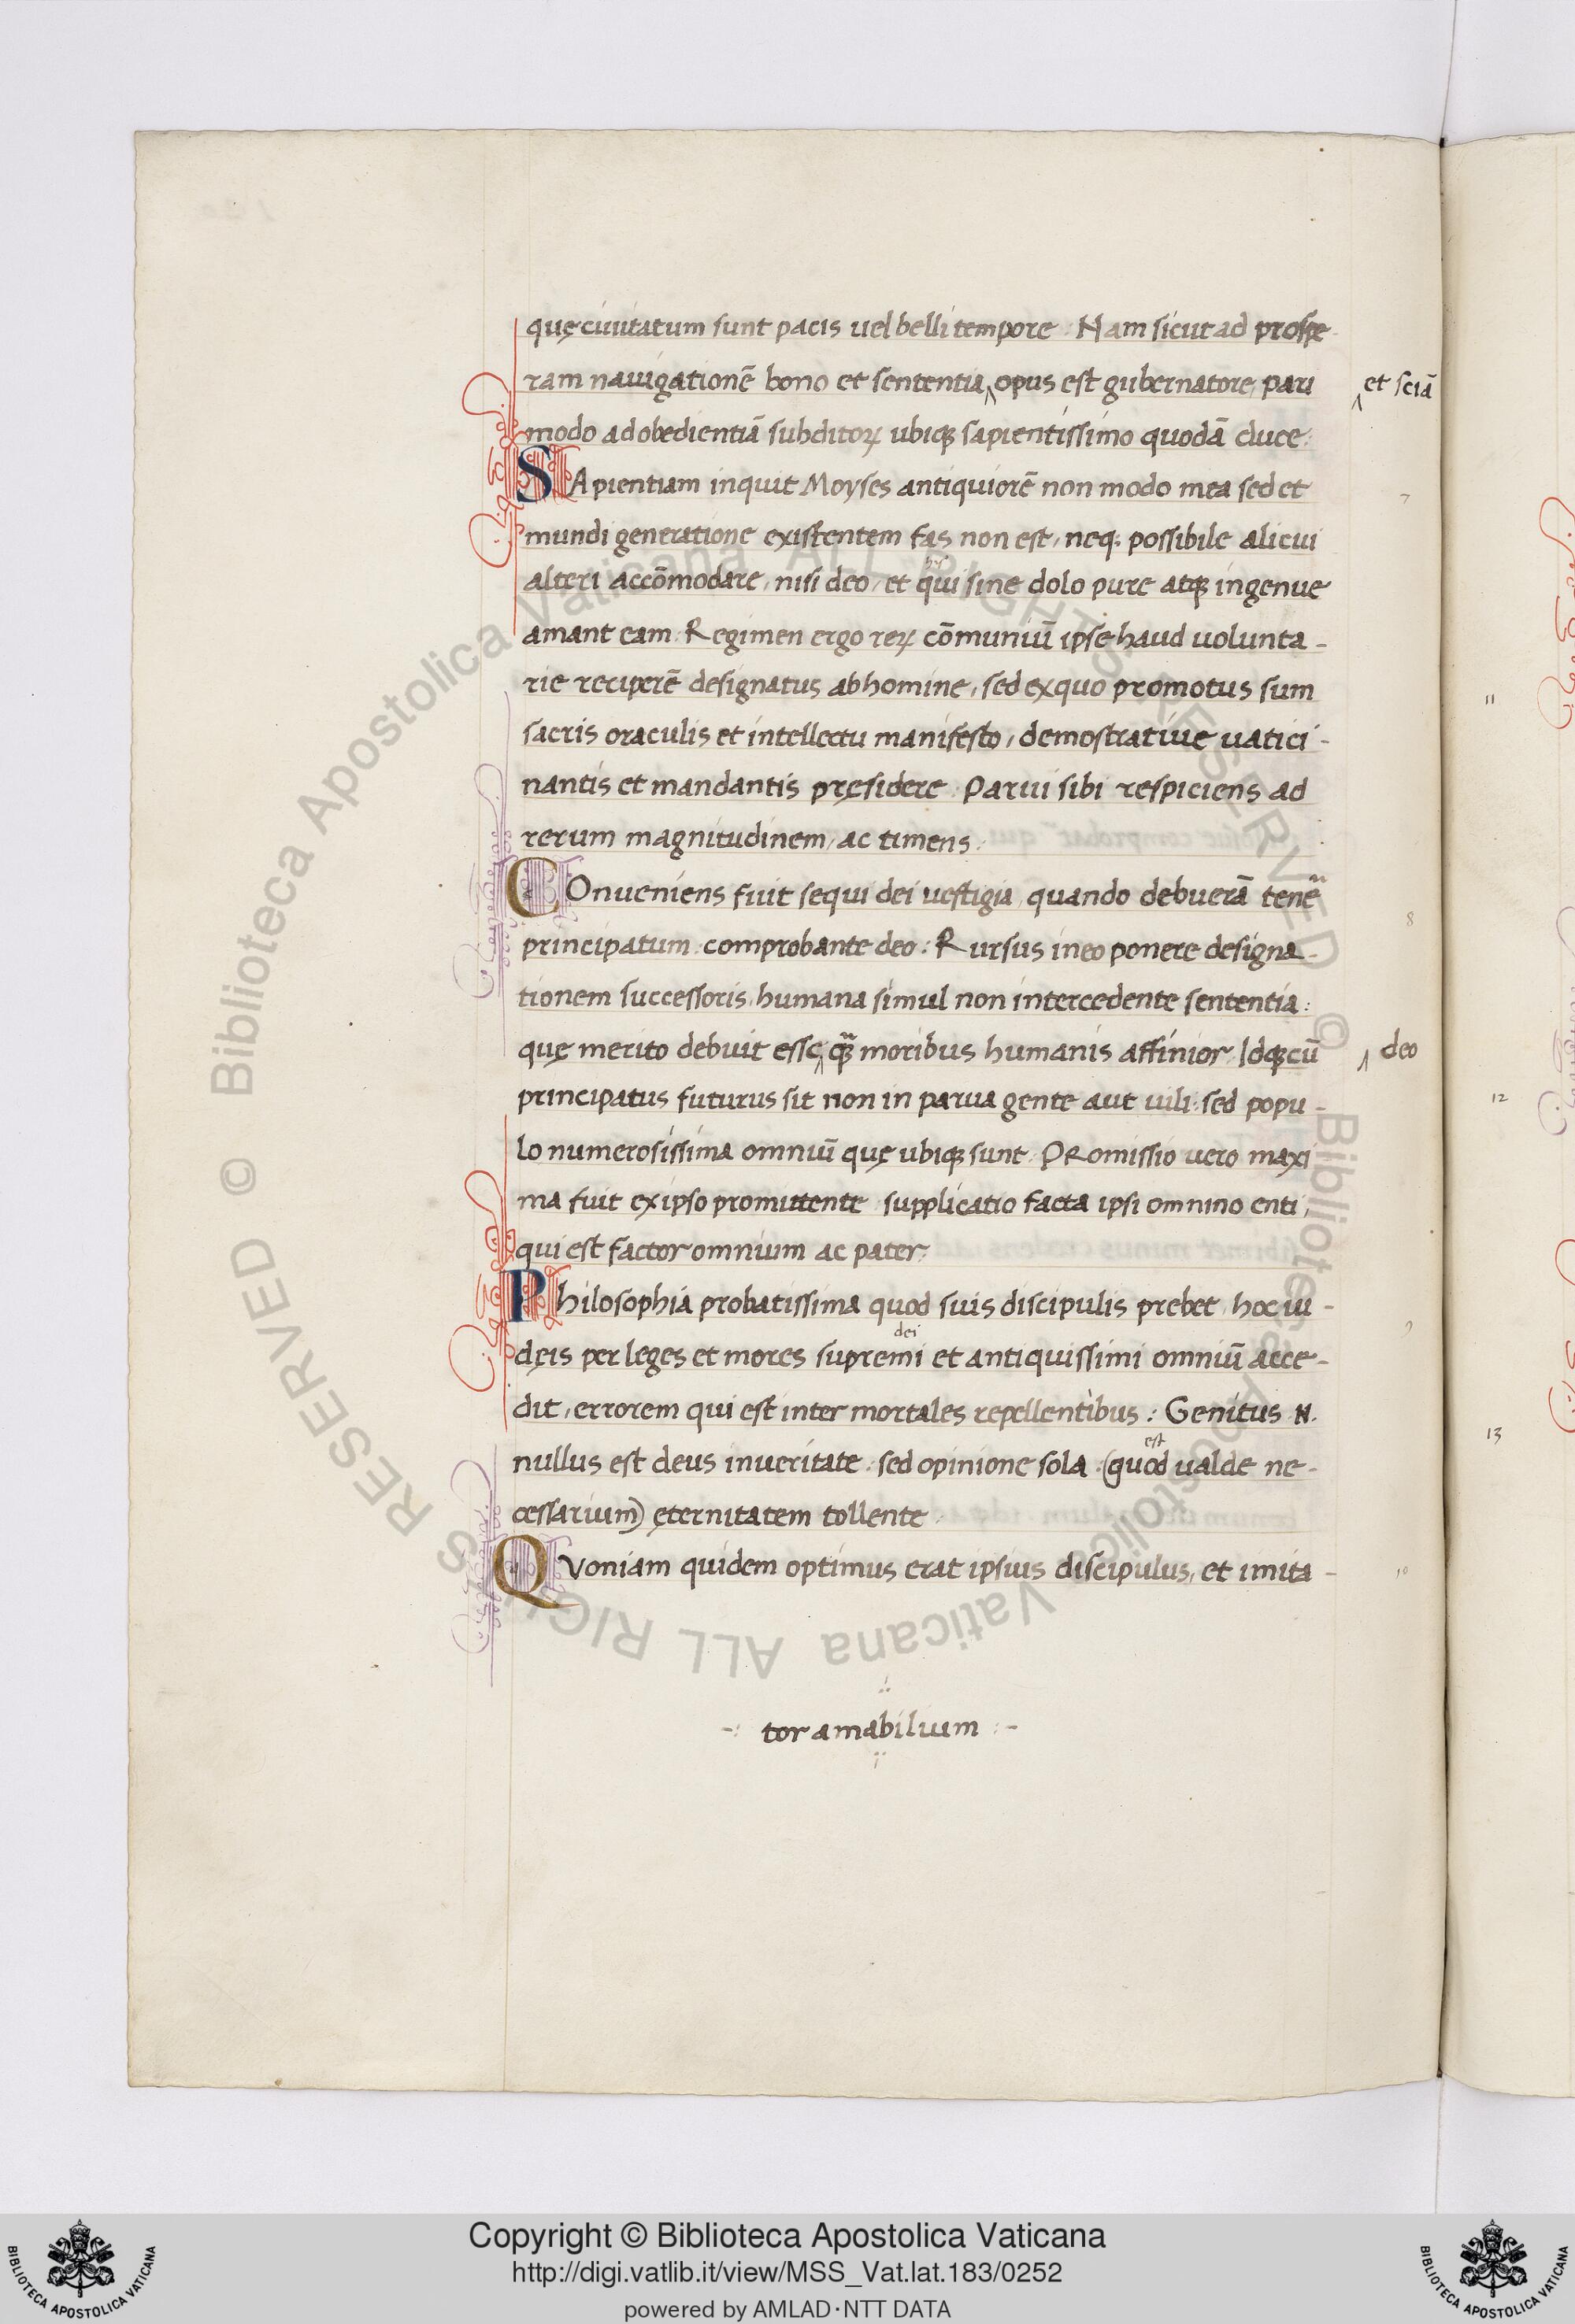 quę ciuitatum sunt pacis uel belli tempore : Nam sicut ad prospe-
ram nauigationē bono et sententia opus est gubernatore, pari
et sciā
modo ad obedientiā subditoꝝ ubiqꝫ sapientissimo quodā duce:
SApientiam inquit Moyses antiquiorē non modo mea sed et
7
mundi generatione existentem fas non est, neq: possibile alicui
alteri accōmodare, nisi deo, et qui sine dolo pure atqꝫ ingenue
amant eam. Regimen ergo reꝝ cōmuniū ipse haud uolunta-
rie reciperē designatus ab homine, sed ex quo promotus sum
sacris oraculis et intellectu manifesto, demostratiue uatici-
nantis et mandantis pręsidere. Parui sibi respiciens ad
rerum magnitudinem, ac timens:
COnueniens fuit sequi dei uestigia, quando debuerā tenē
8
principatum comprobante deo: Rursus in eo ponere designa-
tionem successoris, humana simul non intercedente sententia:
quę merito debuit esse qꝫ̄ moribus humanis affinior. Idqꝫ cū
deo
principatus futurus sit non in parua gente aut uili: sed popu-
lo numerosissima omniū quę ubiqꝫ sunt. PRomissio uero maxi
ma fuit ex ipso promittente supplicatio facta ipsi omnino enti,
qui est factor omnium ac pater:
Philosophia probatissima quod suis discipulis prebet, hoc iu-
dei
9
dęis per leges et mores supremi et antiquissimi omniū acce-
dit, errorem qui est inter mortales repellentibus: Genitus N.
est
nullus est deus in ueritate: sed opinione sola (quod ualde ne-
cessarium) ęternitatem tollente.
QVoniam quidem optimus erat ipsius discipulus, et imita-
10
-: tor amabilium :-
11
12
13
© Biblioteca Apostolica Vaticana ALL RIGHTS RESERVED © Biblioteca Apostolica Vaticana ALL RIGHTS RESERVED
Copyright © Biblioteca Apostolica Vaticana
http://digi.vatlib.it/view/MSS_Vat.lat.183/0252
powered by AMLAD·NTT DATA
BIBLIOTECA APOSTOLICA VATICANA
BIBLIOTECA APOSTOLICA VATICANA